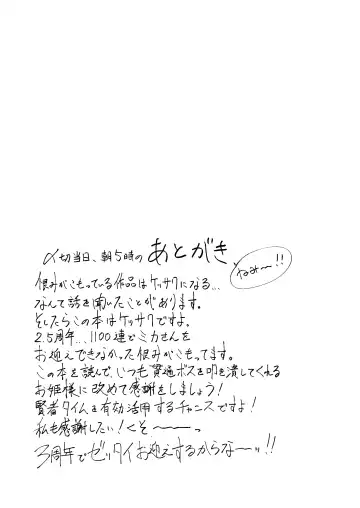 〆切当日、朝5時の あとがき
ねみ〜!!
恨みがこもっている作品はケッサクになる...
なんて話を聞いたことがあります。
そしたらこの本はケッサクですよ。
2.5周年...1100連でミカさんを
お迎えできなかった恨みがこもってます。
この本を読んで、いつも貫通ボスを叩き潰してくれる
お姫様に改めて感謝をしましょう!
賢者タイムを有効活用するチャンスですよ!
私も感謝したい!くそ〜〜〜っ
3周年でゼッタイお迎えするからなーッ!!